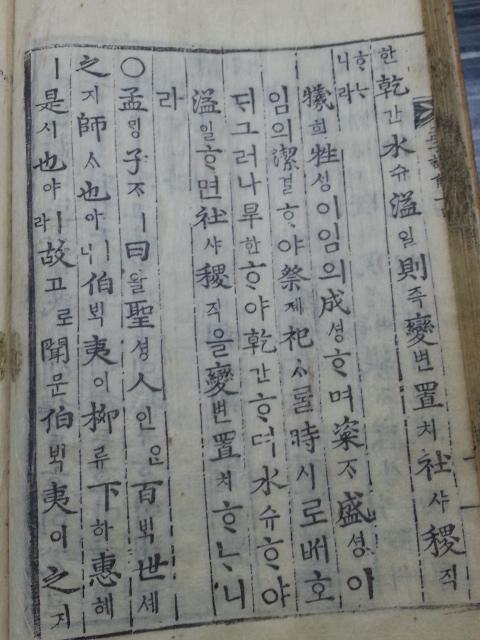 한乾간水슈溢일則즉變변置치社샤稷직
ᄒᆞᄂᆞ
니라
犧희牲ᄉᆡᆼ이임의成셩ᄒᆞ며粢ᄌᆞ盛셩이
임의潔결ᄒᆞ야祭졔祀ᄉᆞ를時시로ᄡᅥ호
ᄃᆡ그러나旱한ᄒᆞ야乾간ᄒᆞ며水슈ᄒᆞ야
溢일ᄒᆞ면社샤稷직을變변置치ᄒᆞᄂᆞ니
라
○孟ᄆᆡᆼ子ᄌᆞㅣ曰왈聖셩人인은百ᄇᆡᆨ世셰
之지師ᄉᆞ也야ㅣ니伯ᄇᆡᆨ夷이柳류下하惠혜
ㅣ是시也야ㅣ라故고로聞문伯ᄇᆡᆨ夷이之지